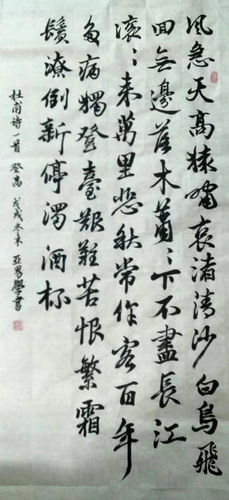 風急天高猿嘯哀渚清沙白鳥飛
回無邊落木蕭〻下不盡長江
滾〻来萬里悲秋常作客百年
多病獨登臺艱難苦恨繁霜
鬢潦倒新停濁酒杯
杜甫詩一首 登高 戊戌冬末 亞男學書